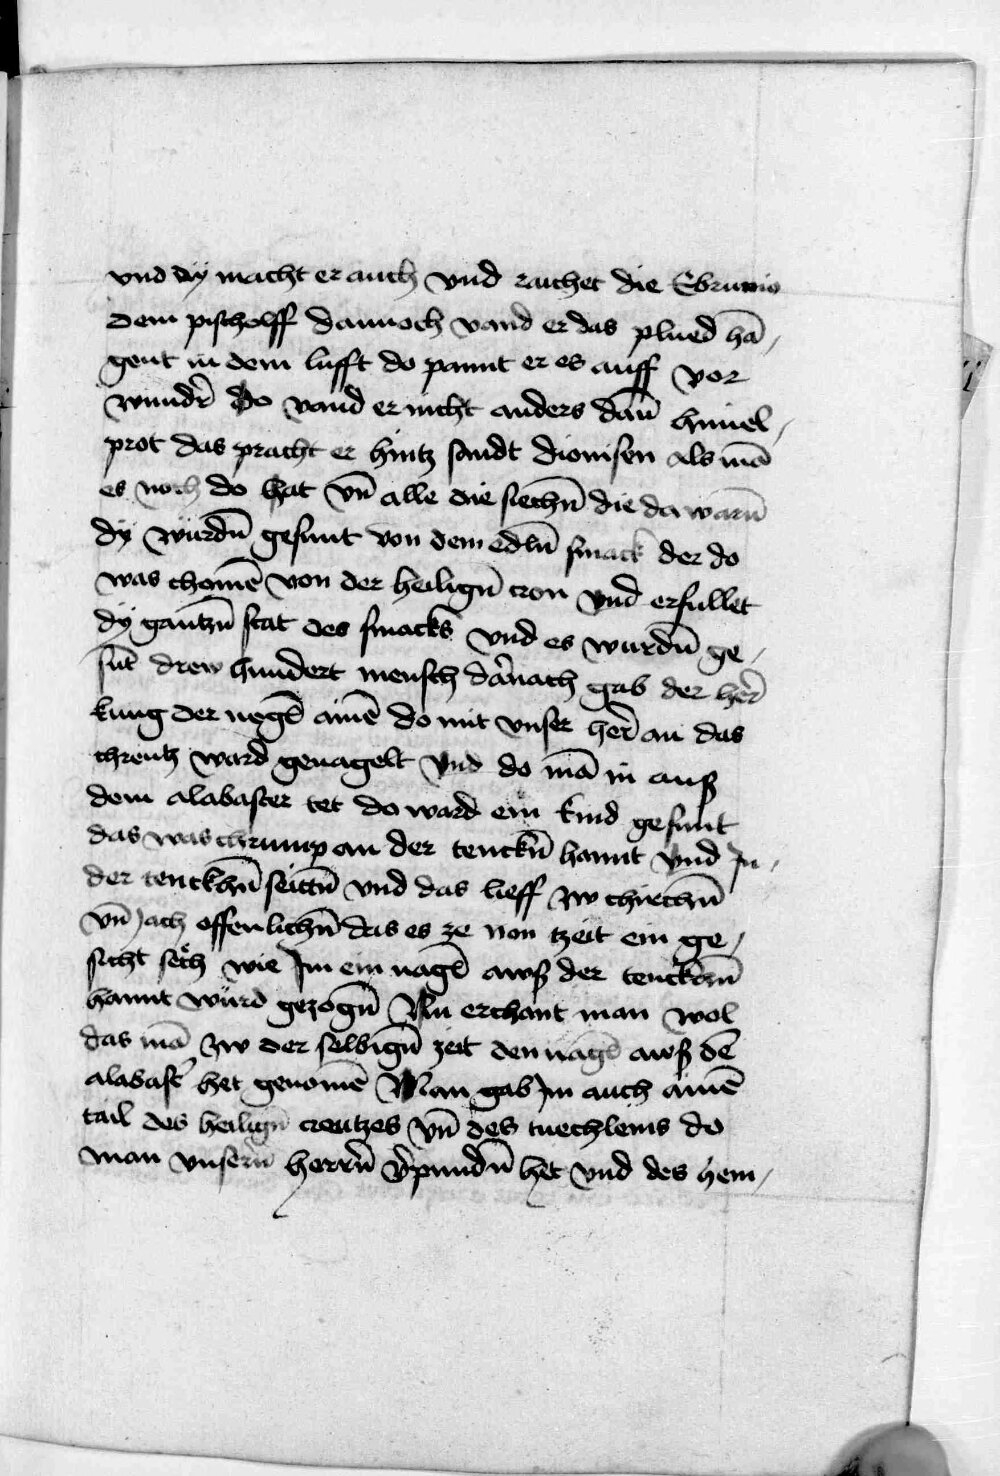 vnd dÿ macht er auch vnd raichet die Ebrunio
dem pischolff dannoch vand er das plued hā /
gent in dem lufft do pannt er es auff vor
wundr̄ do vand er nicht anders dañ himel /
prot das pracht er hintz sandt dionisen als mā
es noch do hat vn̄ alle die siechn̄ die da warn̄
dÿ wurdn̄ gesunt von dem edln̄ smack der do
was chomē von der heilign̄ cron vnd erfullet
dÿ gantzn̄ stat des smacks vnd es wurdn̄ ge /
sūt drew hundert mensch dar̄nach gab der her̄
kung der negl̄ ainē do mit vnser her̄ an das
chreutz ward genagelt vnd do mā in auß
dem alabaster tet do ward ein kind gesunt
das was chrump an der tenckn̄ hannt vnd Jn /
der tenckhn̄ seittn̄ vnd das lieff zw chirchn̄
vn̄ jach offenlichn̄ das es ze non tzeit ein ge /
sicht sech wie Jm ein nagl̄ awß der tenckhn̄
hannt würd gezogn̄ Nu erchant man wol
das mā zw der selbign̄ zeit den nagl̄ awß dē
alabast̄ het genomē Man gab Jm auch ainē
tail des heilign̄ creutzes vn̄ des tuechleins do
man vnsern̄ herrn̄ v̄pundn̄ het vnd des hem /